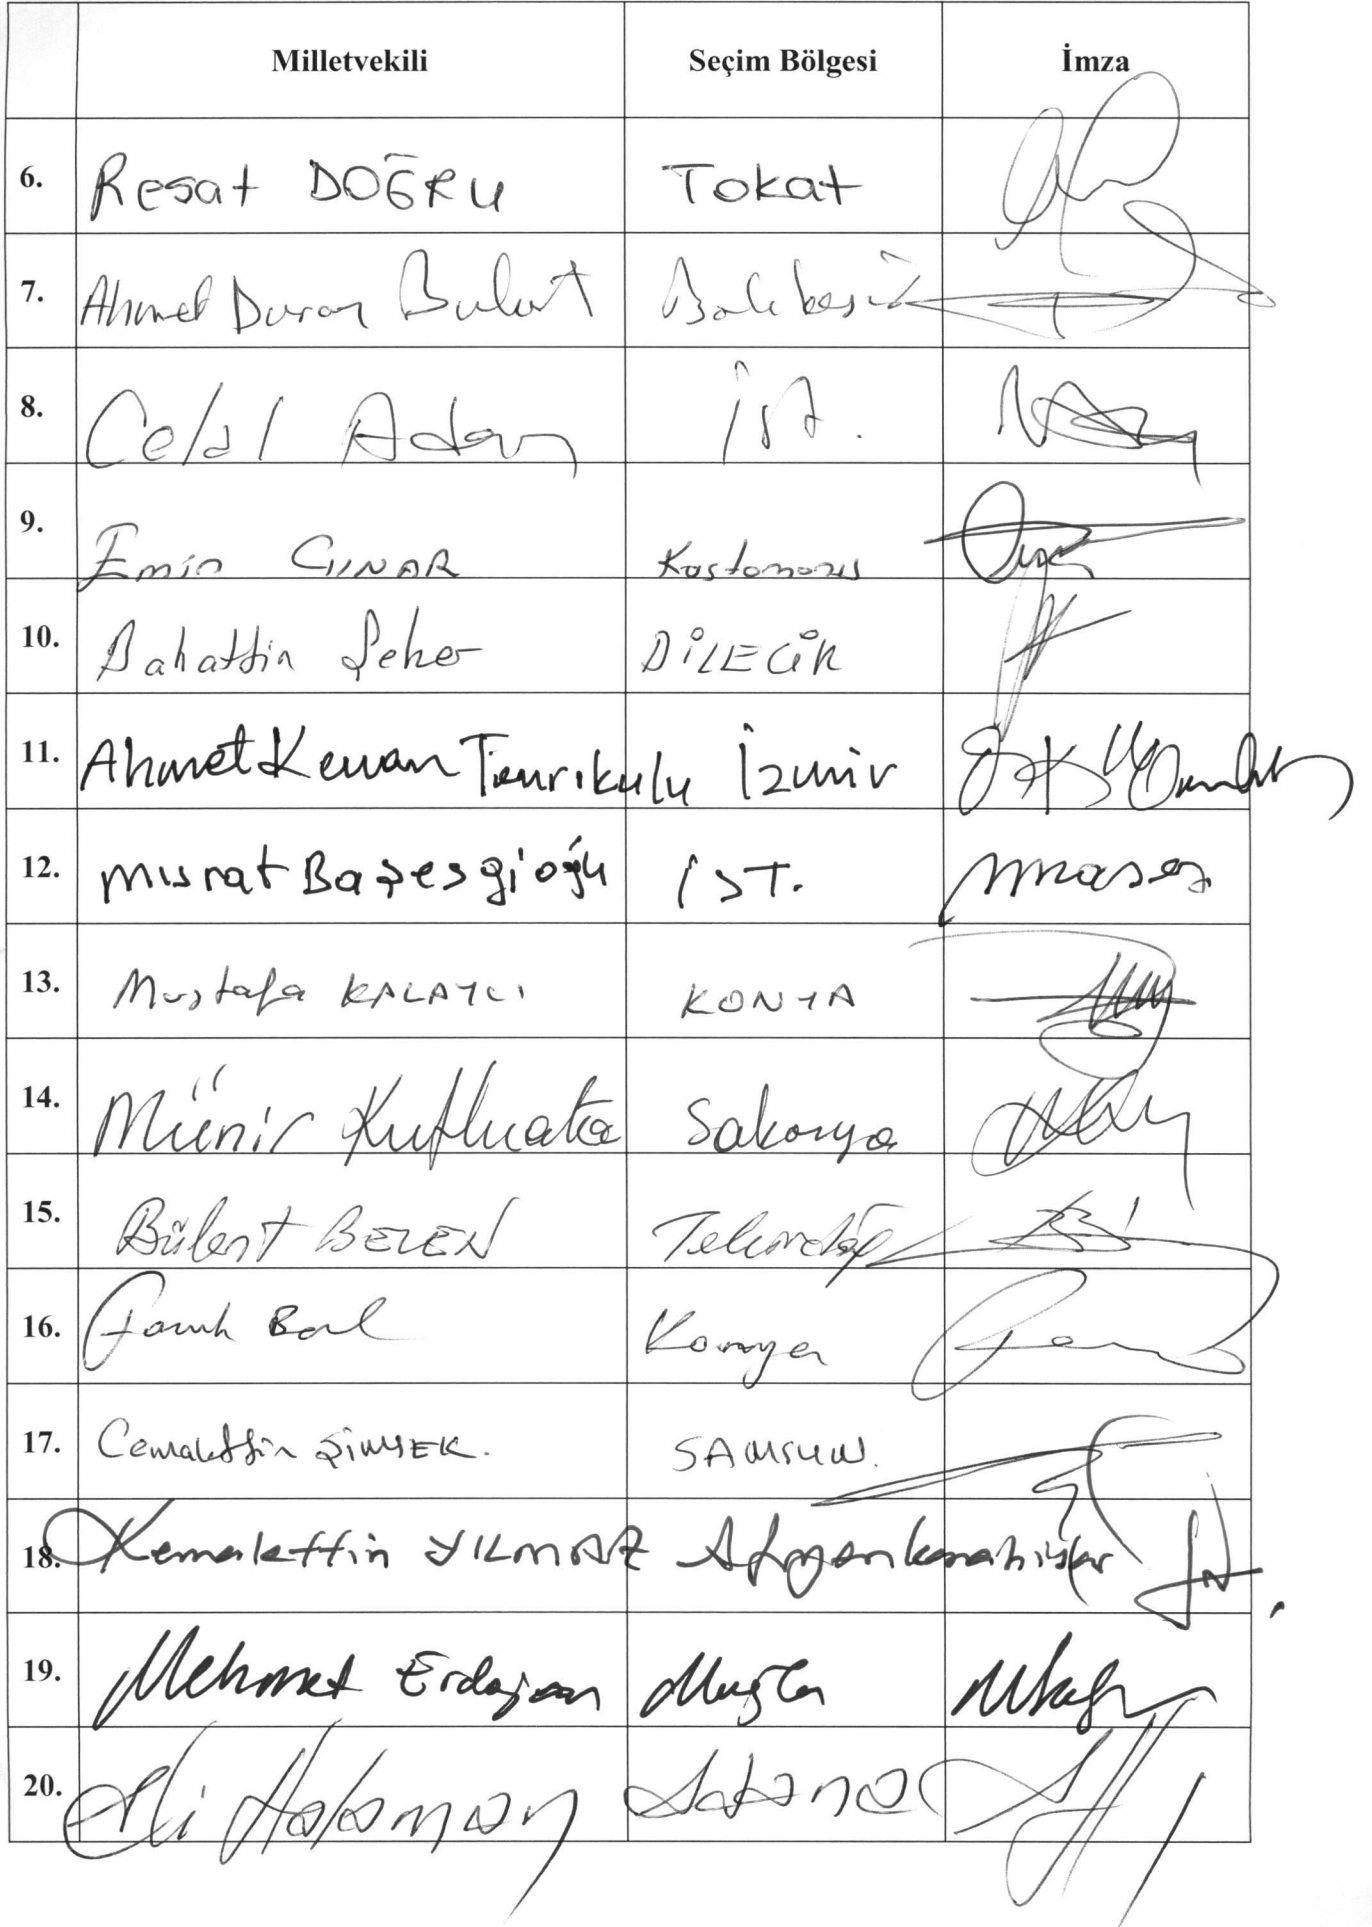 Milletvekili Seçim Bölgesi İmza
6. Resat DOĞRU Tokat
7. Ahmet Duran Bulut Balıkesir
8. Celal Adan İST.
9. Emin ÇINAR Kastamonu
10. Bahattin Şeker BİLECİK
11. Ahmet Kenan Tanrıkulu İzmir
12. Murat Başesgioğlu İST.
13. Mustafa KALAYCI KONYA
14. Münir Kutluata Sakarya
15. Bülent BELEN Tekirdağ
16. Faruk Bal Konya
17. Cemalettin ŞİMŞEK. SAMSUN.
18. Kemalettin YILMAZ Afyonkarahisar
19. Mehmet Erdoğan Muğla
20. Ali Halaman Adana